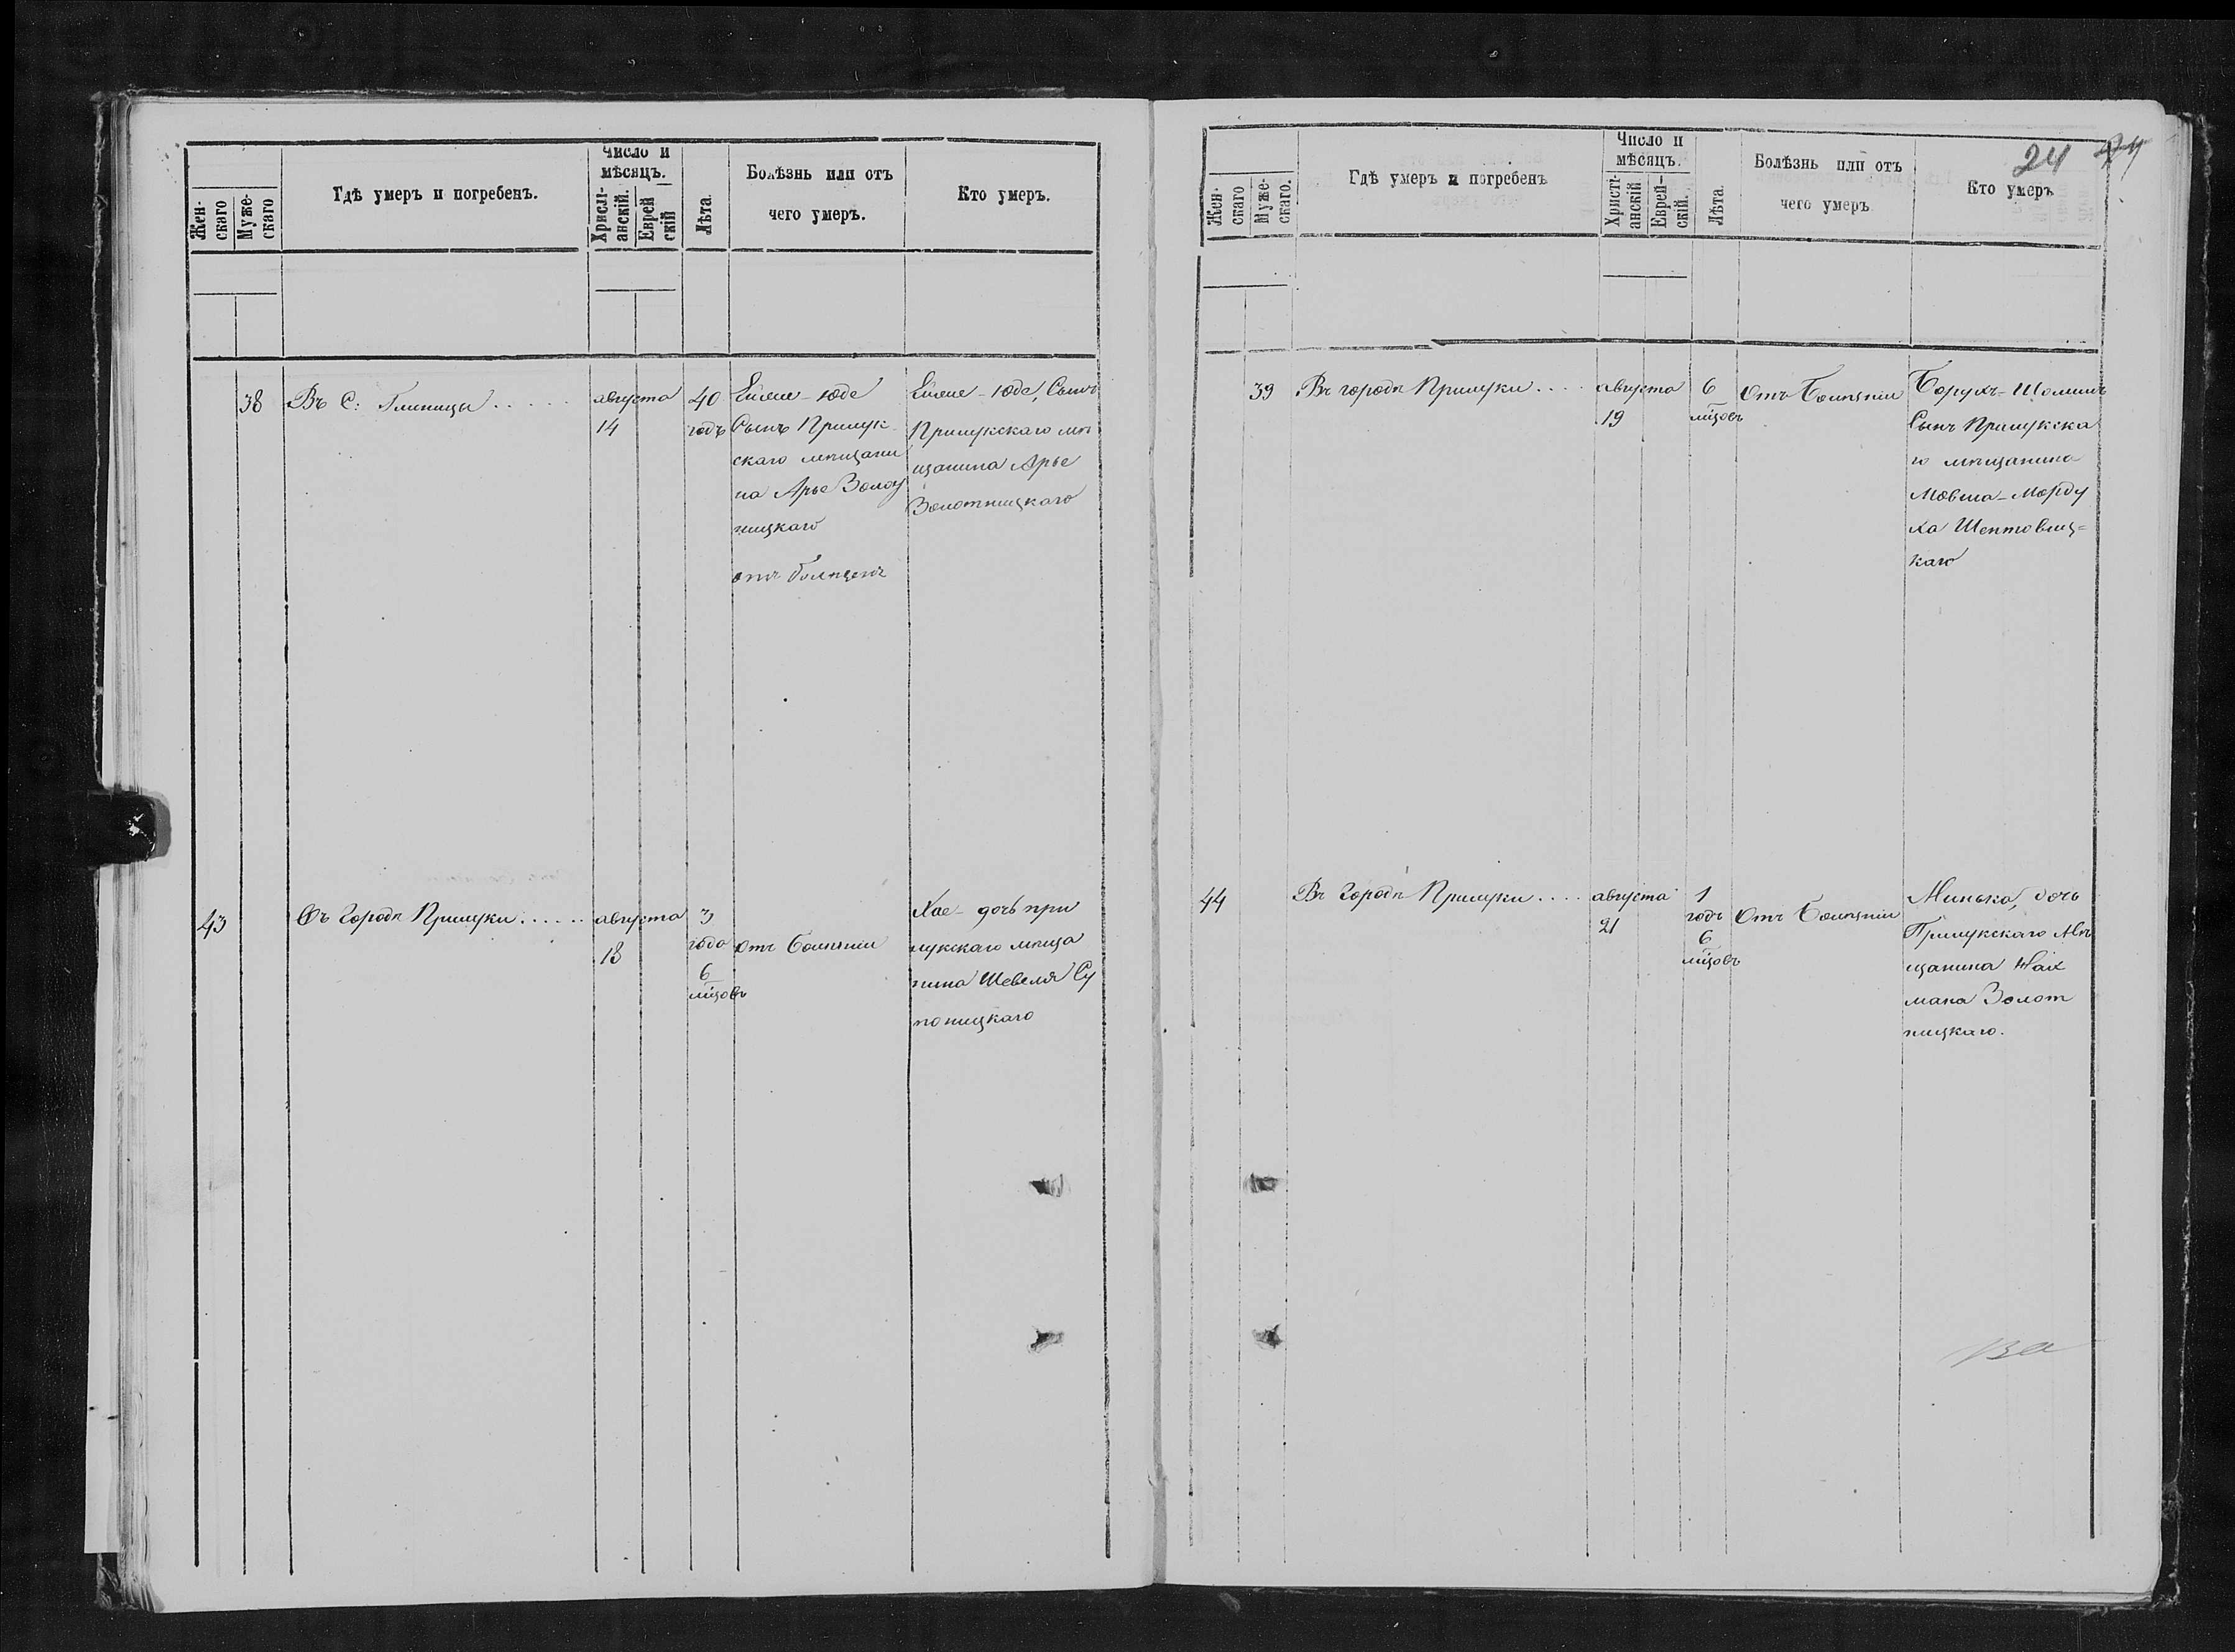 Жен-
скаго
Муже-
скаго
Гдѣ умеръ и погребенъ.
Число и
мѣсяцъ.
Христі-
анскій.
Еврей
скій
Лѣта.
Болѣзнь или отъ
чего умеръ.
Кто умеръ.
38
Въ С: Глиницы . . . . .
августа
14
40
годъ
Юде
Сынъ Прилук-
скаго мѣщани
на Арье Золот
ницкаго
отъ
Юде, Сынъ
Прилукскаго мѣ
щанина Арье
Золотницкаго
43
Въ Городѣ Прилуки . . . . . .
августа
18
3
года
6
мѣцовъ
отъ Болѣзни
Хае - дочь при
лукскаго мѣща
нина Шевеля Су
поницкаго
24
Жен-
скаго
Муже-
скаго.
Гдѣ умеръ и погребенъ
Число и
мѣсяцъ.
Христі-
анскій
Еврей-
скій.
Лѣта.
Болѣзнь или отъ
чего умеръ
Кто умеръ
39
Въ городѣ Прилуки . . . .
августа
19
6
мѣцовъ
отъ Болѣзни
Борухъ-Шоломъ
Сынъ Прилукска
го мѣщанина
Мовша-Морду
ха Шептовиц=
каго
44
Въ Городѣ Прилуки . . . .
августа
21
1
годъ
6
мѣцовъ
Отъ Болѣзни
Минька, дочь
Прилукскаго Мѣ
щанина Най
мана Золот
ницкаго.